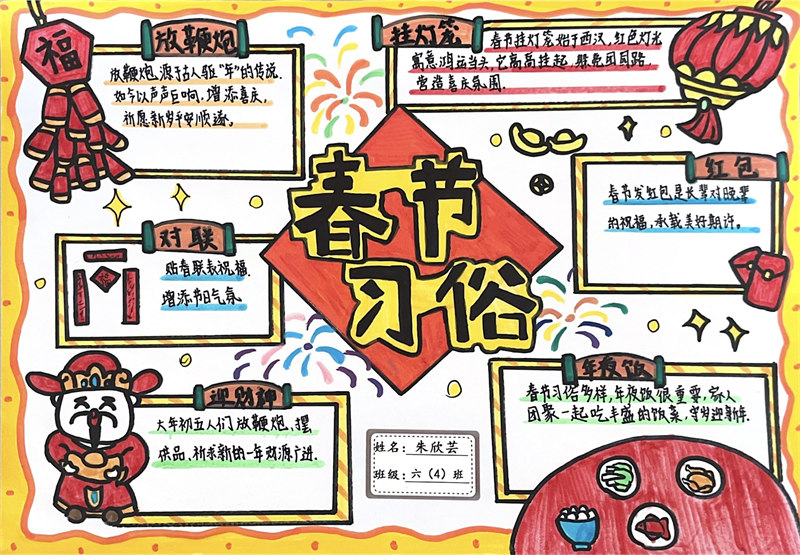 福
放鞭炮
放鞭炮,源于古人驱“年”的传说.
如今以声声巨响,增添喜庆,
祈愿新岁平安顺遂。
挂灯笼
春节挂灯笼始于西汉,红色灯光
寓意鸿运当头,它高高挂起,躲兔团圆路,
营造喜庆氛围.
红包
春节发红包是长辈对晚辈
的祝福,承载美好期许。
春节
习俗
对联
贴春联表祝福.
增添节日气氛
迎财神
大年初五人们放鞭炮,摆
供品,祈求新的一年财源广进.
年夜饭
春节习俗多样,年夜饭很重要,家人
团聚一起吃丰盛的饭菜,守岁迎新年.
姓名: 朱欣芸
班级: 六(4)班